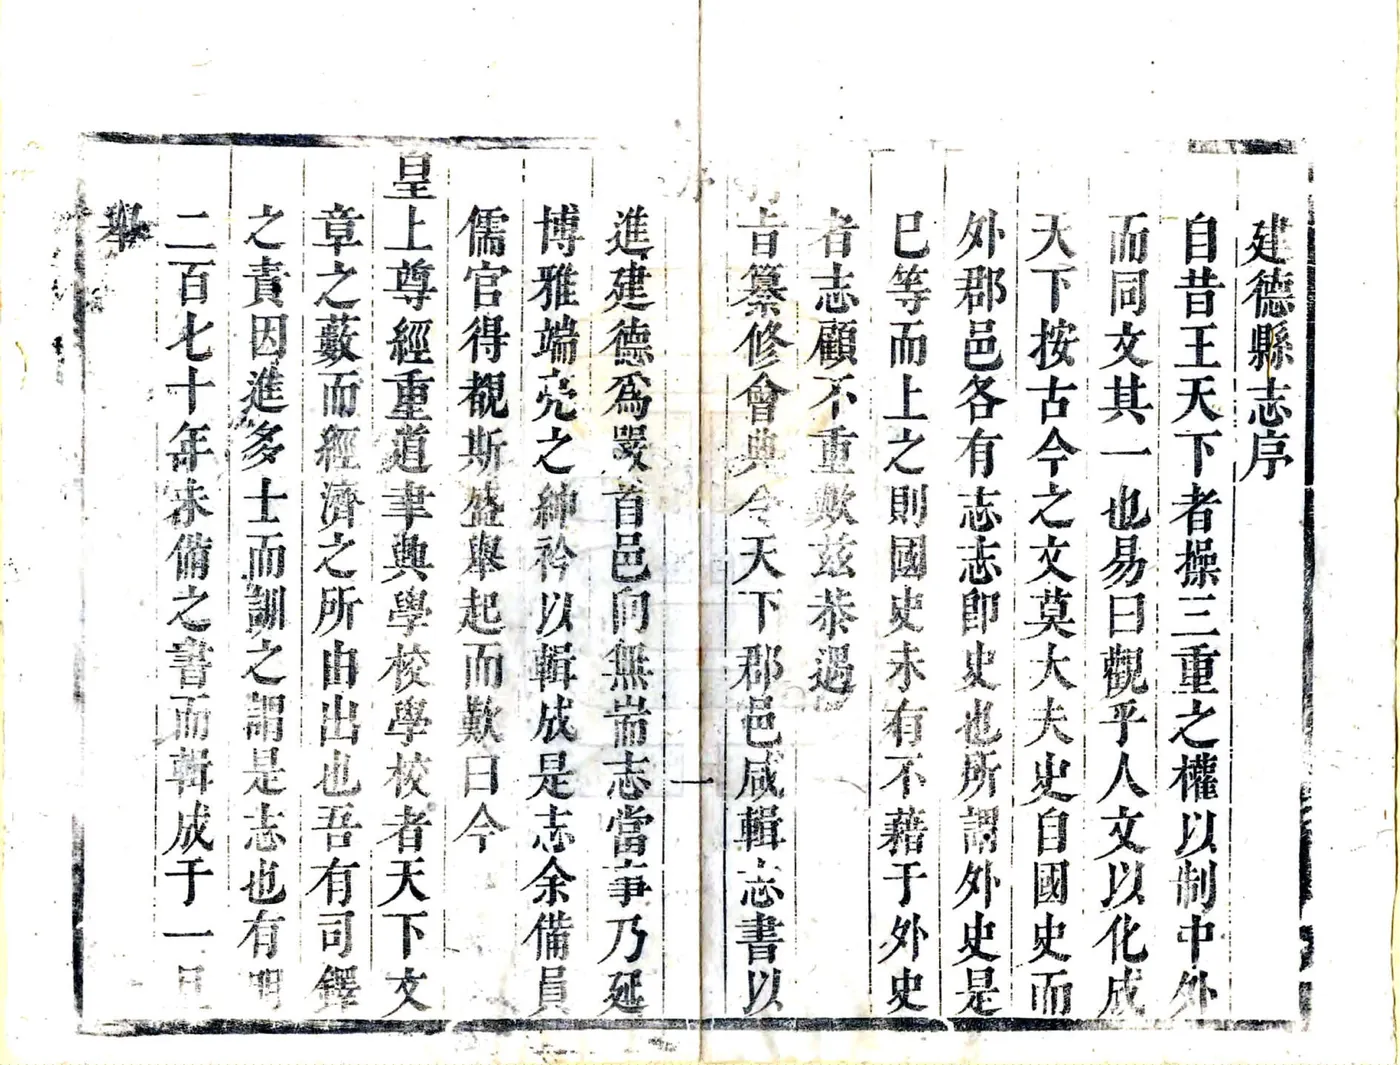 建德縣志序
自昔王天下者操三重之權以制中外
而同文其一也易曰觀乎人文以化成
天下按古今之文莫大夫史自國史而
外郡邑各有志志卽史也所謂外史是
巳等而上之則國史未有不藉于外史
者志顧不重歟兹恭遇
旨纂修會典令天下郡邑咸輯志書以
一
進建德爲嚴首邑何無耑志當事乃延
博雅端亮之紳衿以輯成是志余備員
儒官得覩斯盛舉起而歎曰今
皇上尊經重道聿興學校學校者天下文
章之藪而經濟之所由出也吾有司鐸
之責因進多士而訓之謂是志也有明
二百七十年未備之書而輯成于一旦
舉